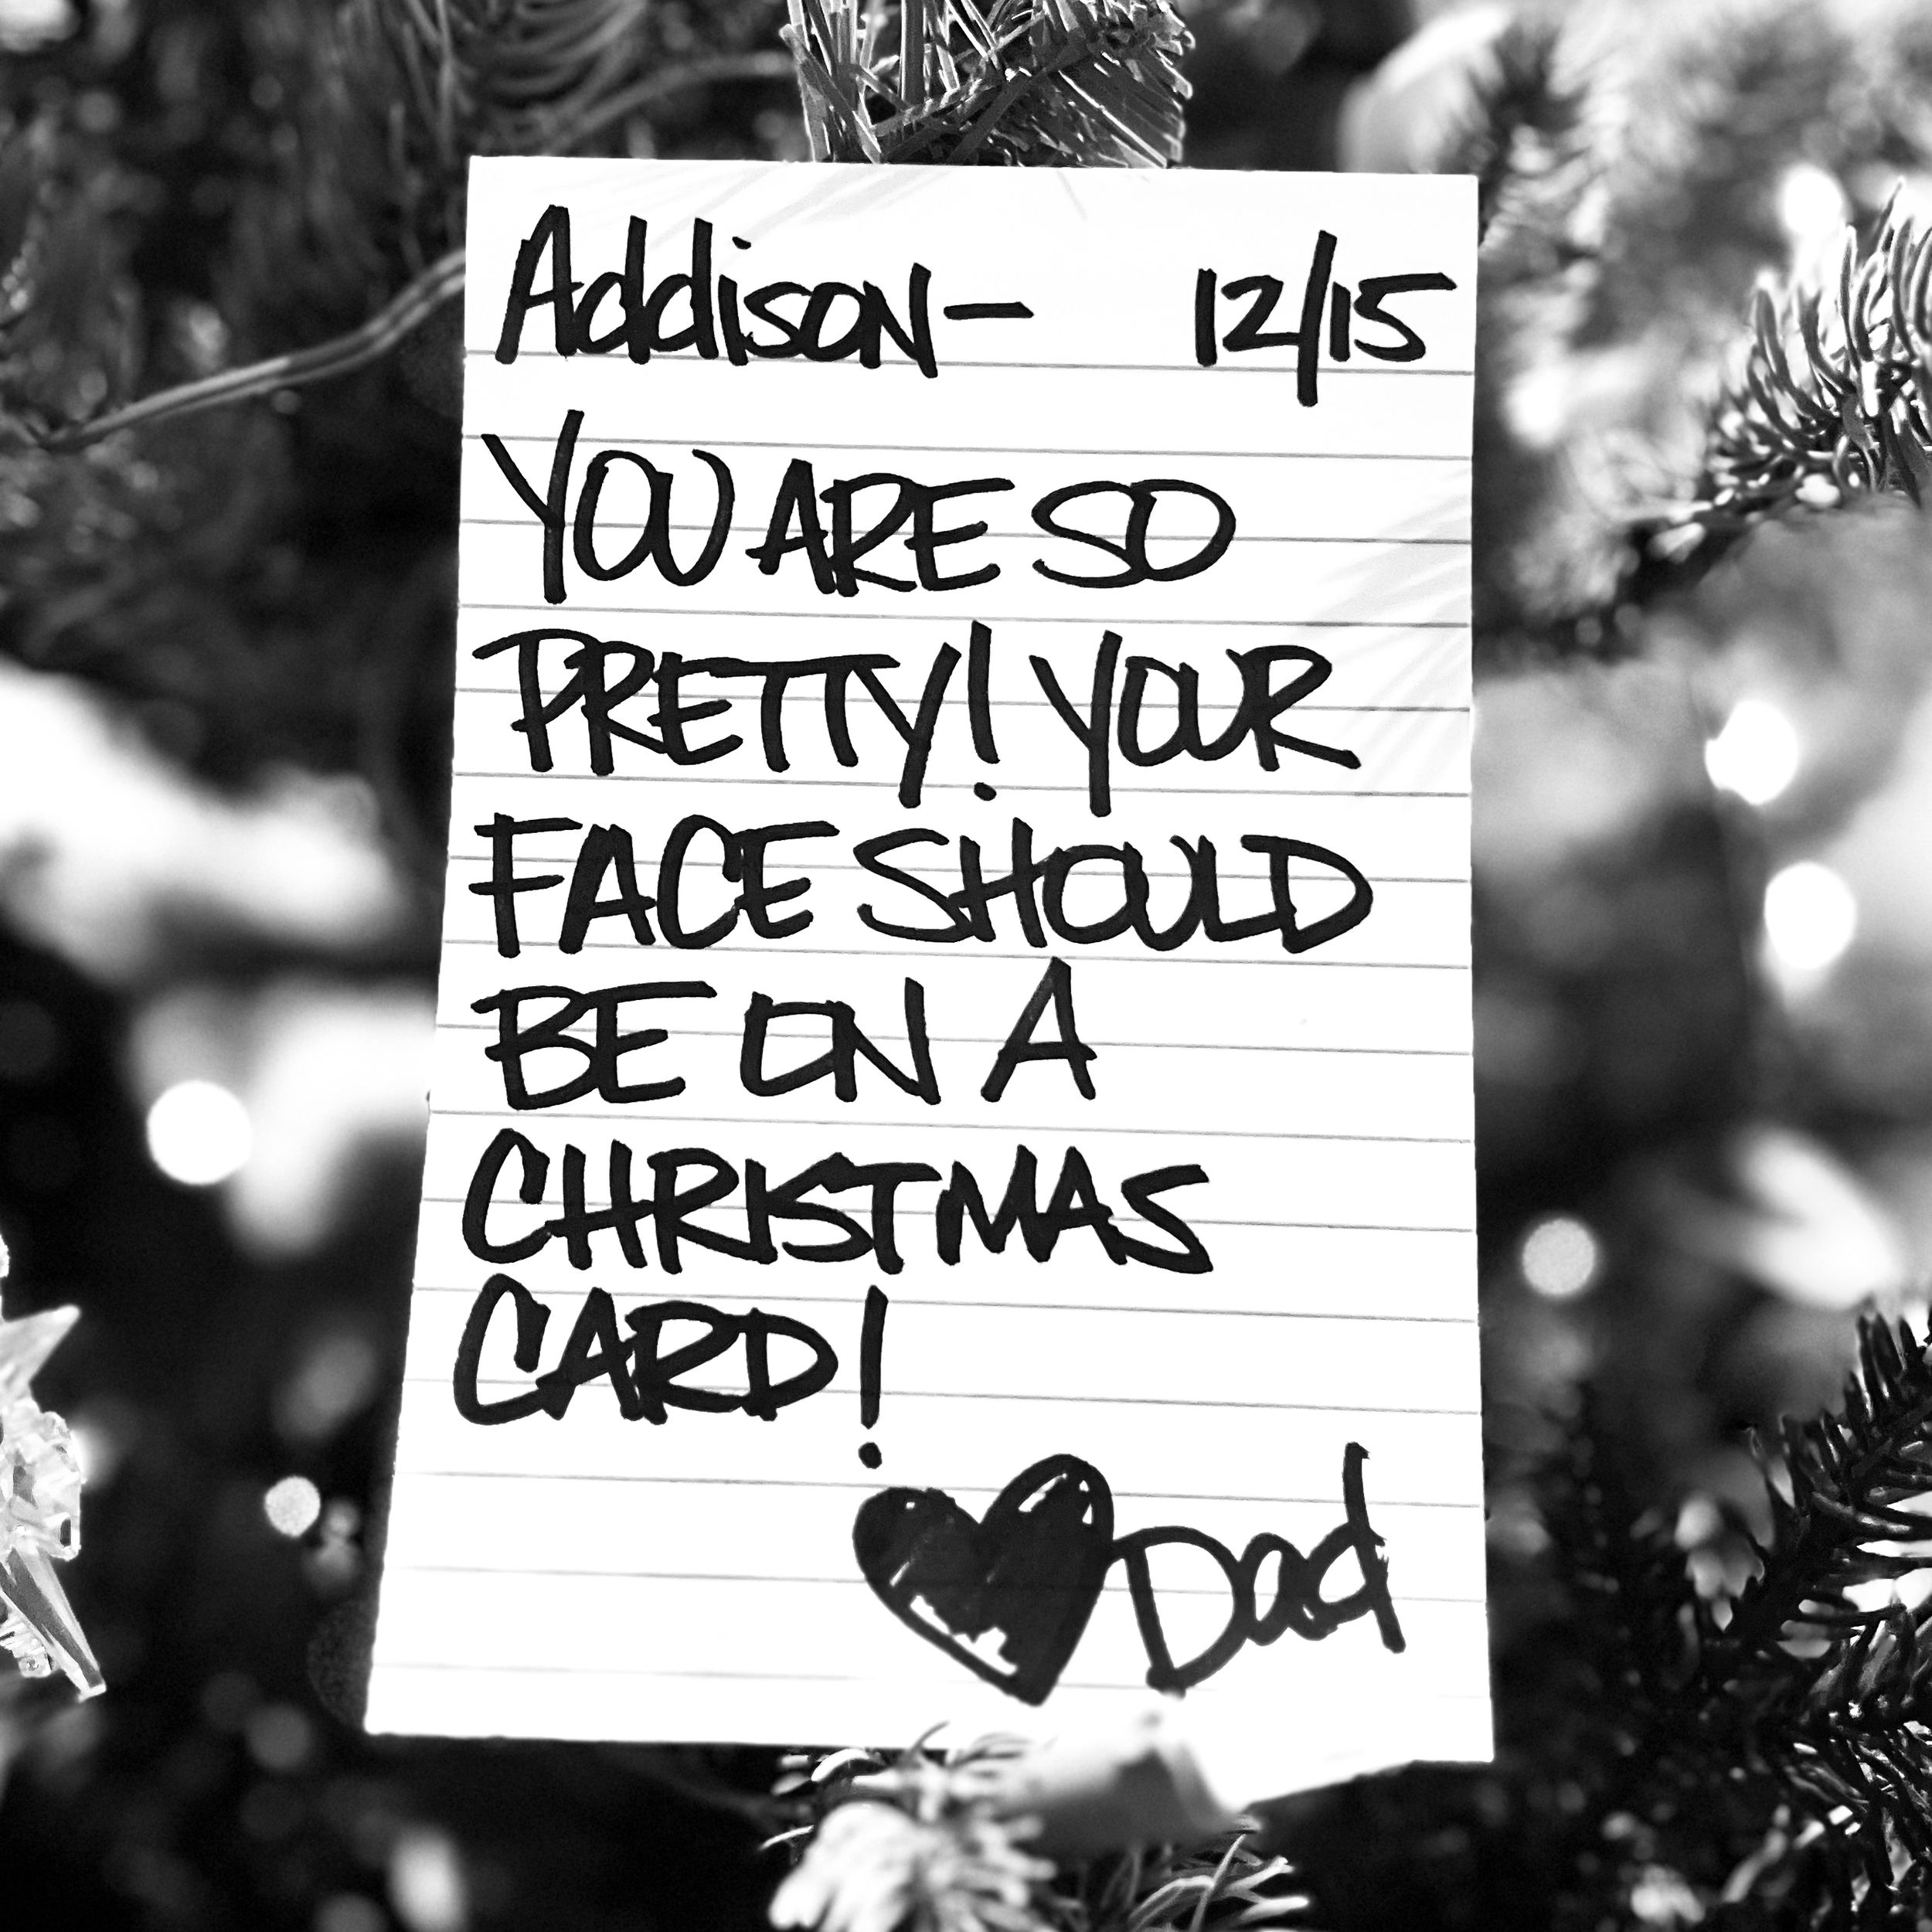 Addison- 12/15
YOU ARE SO
PRETTY! YOUR
FACE SHOULD
BE ON A
CHRISTMAS
CARD!
Dad